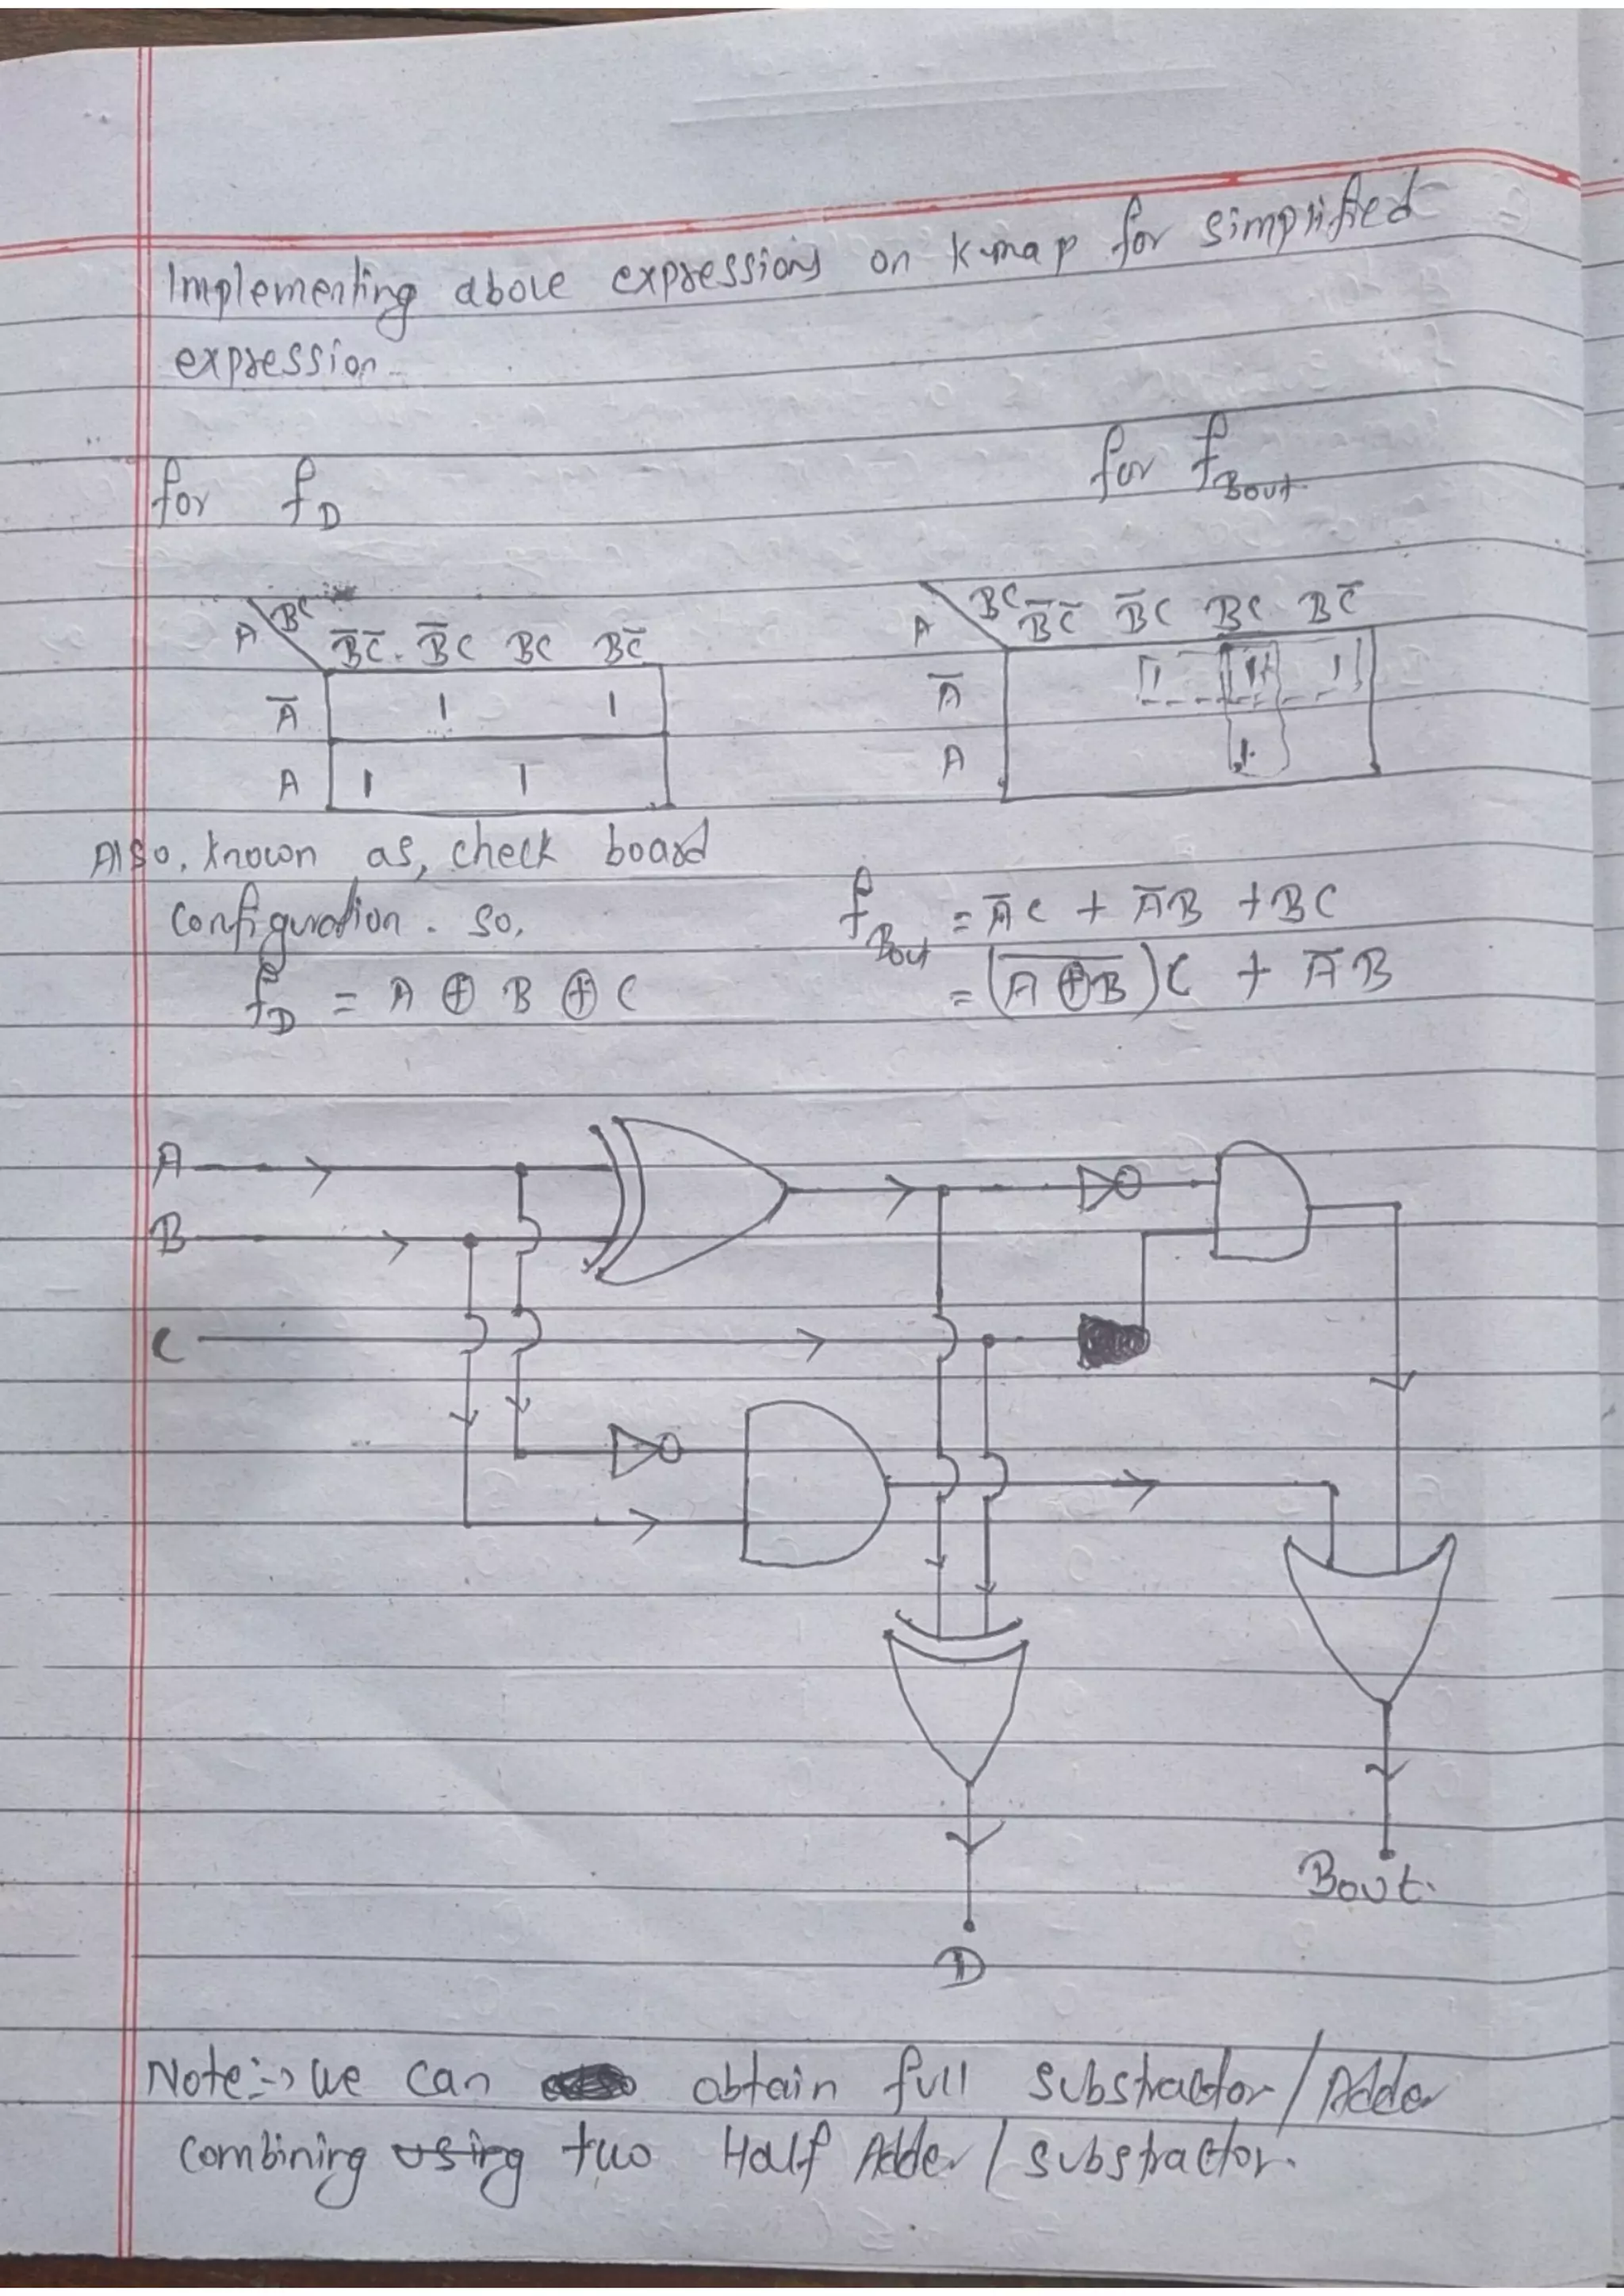 Implementing above expressions on K-map for simplified
expression
for f_D
for f_Bout
A \ BC  B̅C̅  B̅C  BC  BC̅
A̅  1  1
A  1  1
A \ BC  B̅C̅  B̅C  BC  BC̅
A̅  1  1  1
A  1
Also, known as, check board
configuration. so,
f_D = A ⊕ B ⊕ C
f_Bout = A̅C + A̅B + BC
= (A̅ ̅⊕̅ ̅B̅)C + A̅B
A
B
C
Bout.
D
Note:→ We can obtain full substractor/Adder
combining using two Half Adder/substractor.